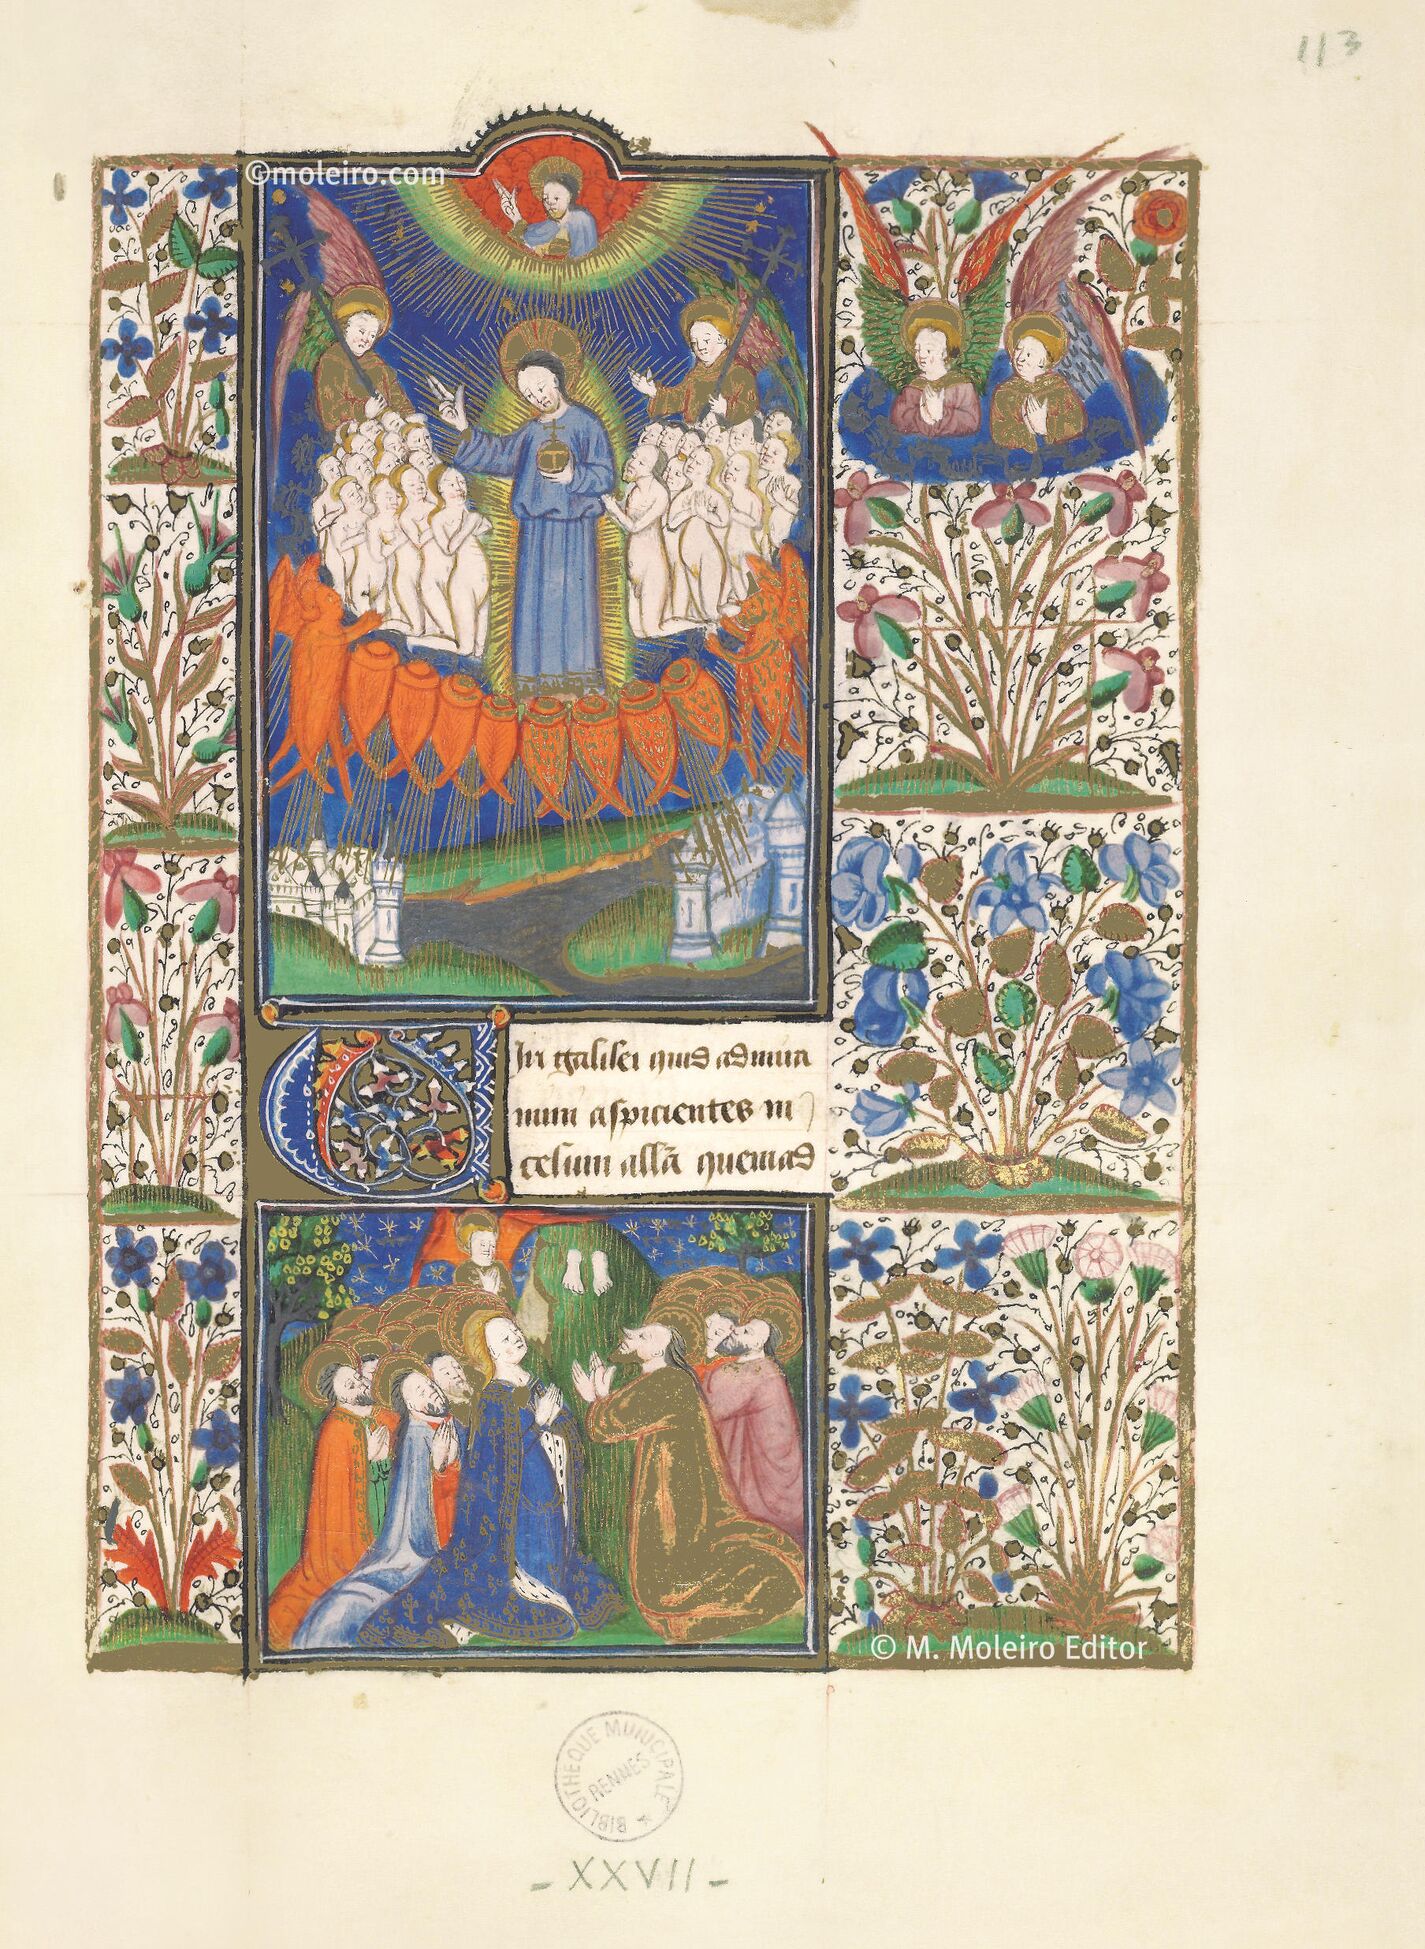 113
©moleiro.com
Viri galilei quid admira
mini aspicientes in
celum all̃a quemad
© M. Moleiro Editor
BIBLIOTHÈQUE MUNICIPALE
RENNES
- XXVII -